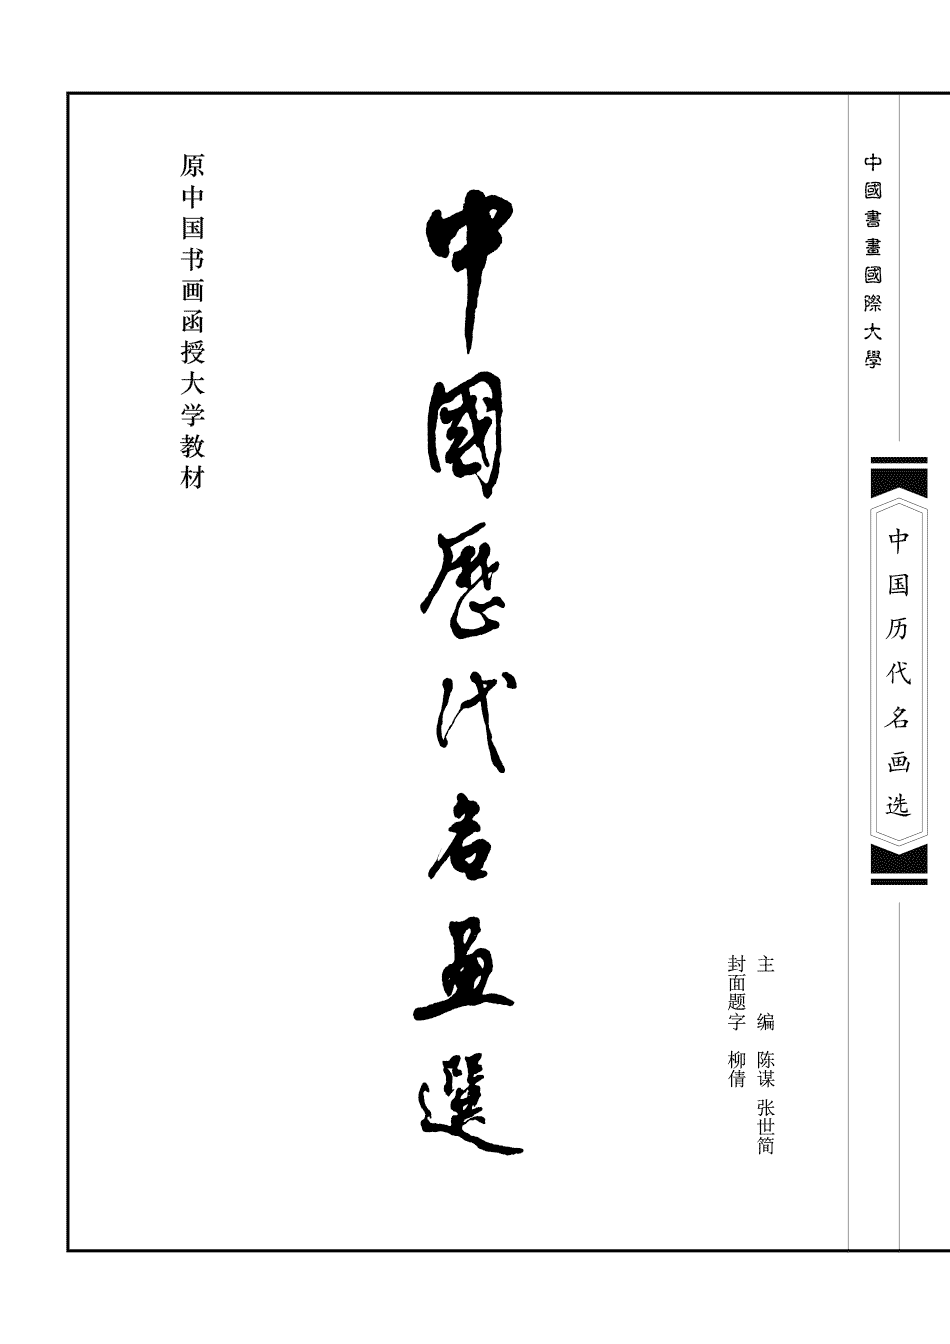 中國書畫國際大學
中国历代名画选
主 编 陈谋 张世简
封面题字 柳倩
中國歷代名畫選
原中国书画函授大学教材